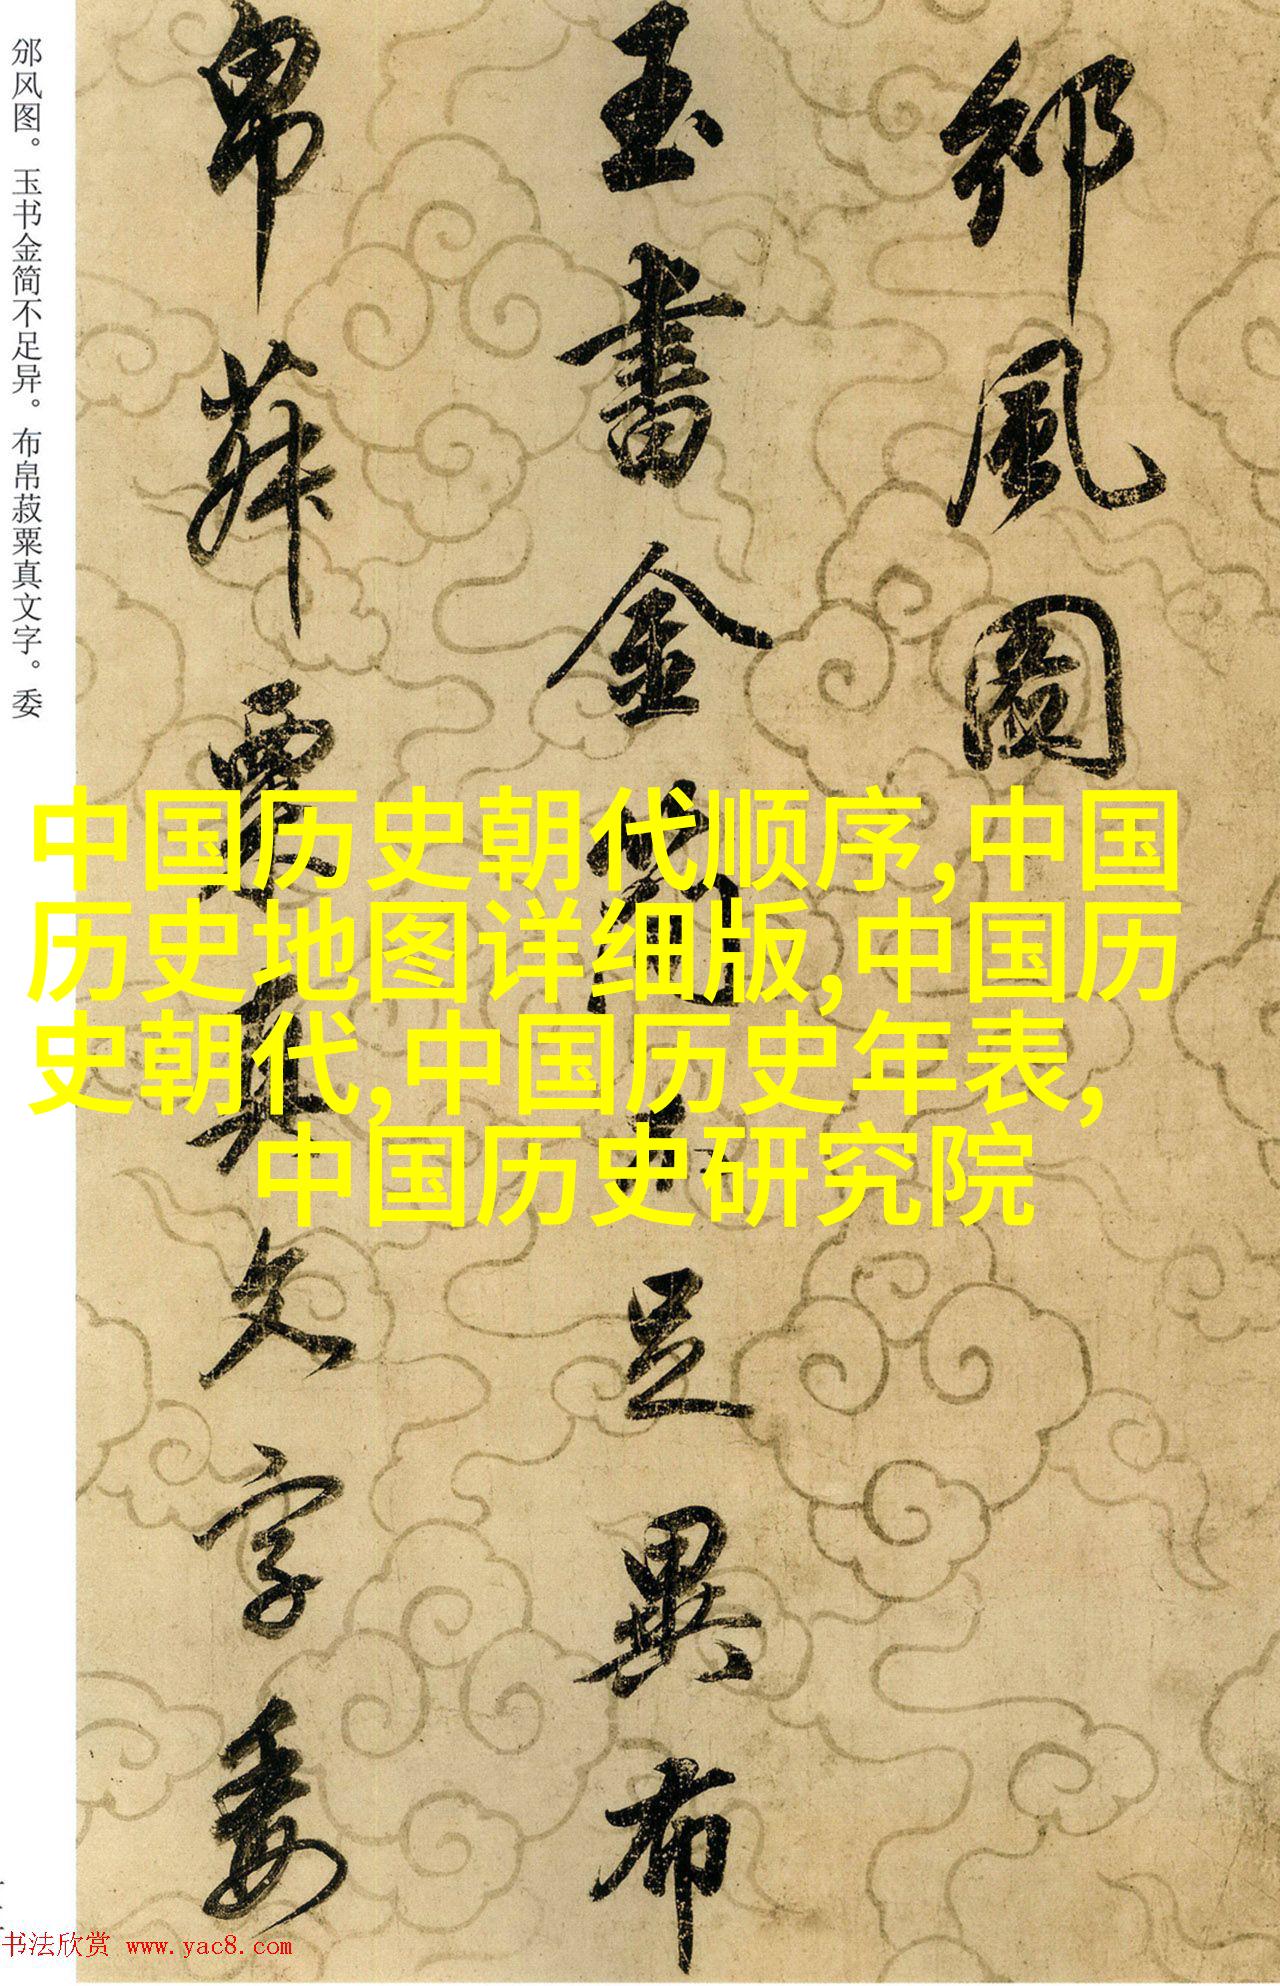 邠風圖
玉書金簡不足異布
帛菽粟真文字委
邠风图。玉书金简不足异。布帛菽粟真文字。委
中国历史朝代顺序,中国
历史地图详细版,中国历
史朝代,中国历史年表,
中国历史研究院
书法欣赏 www.yac8.com